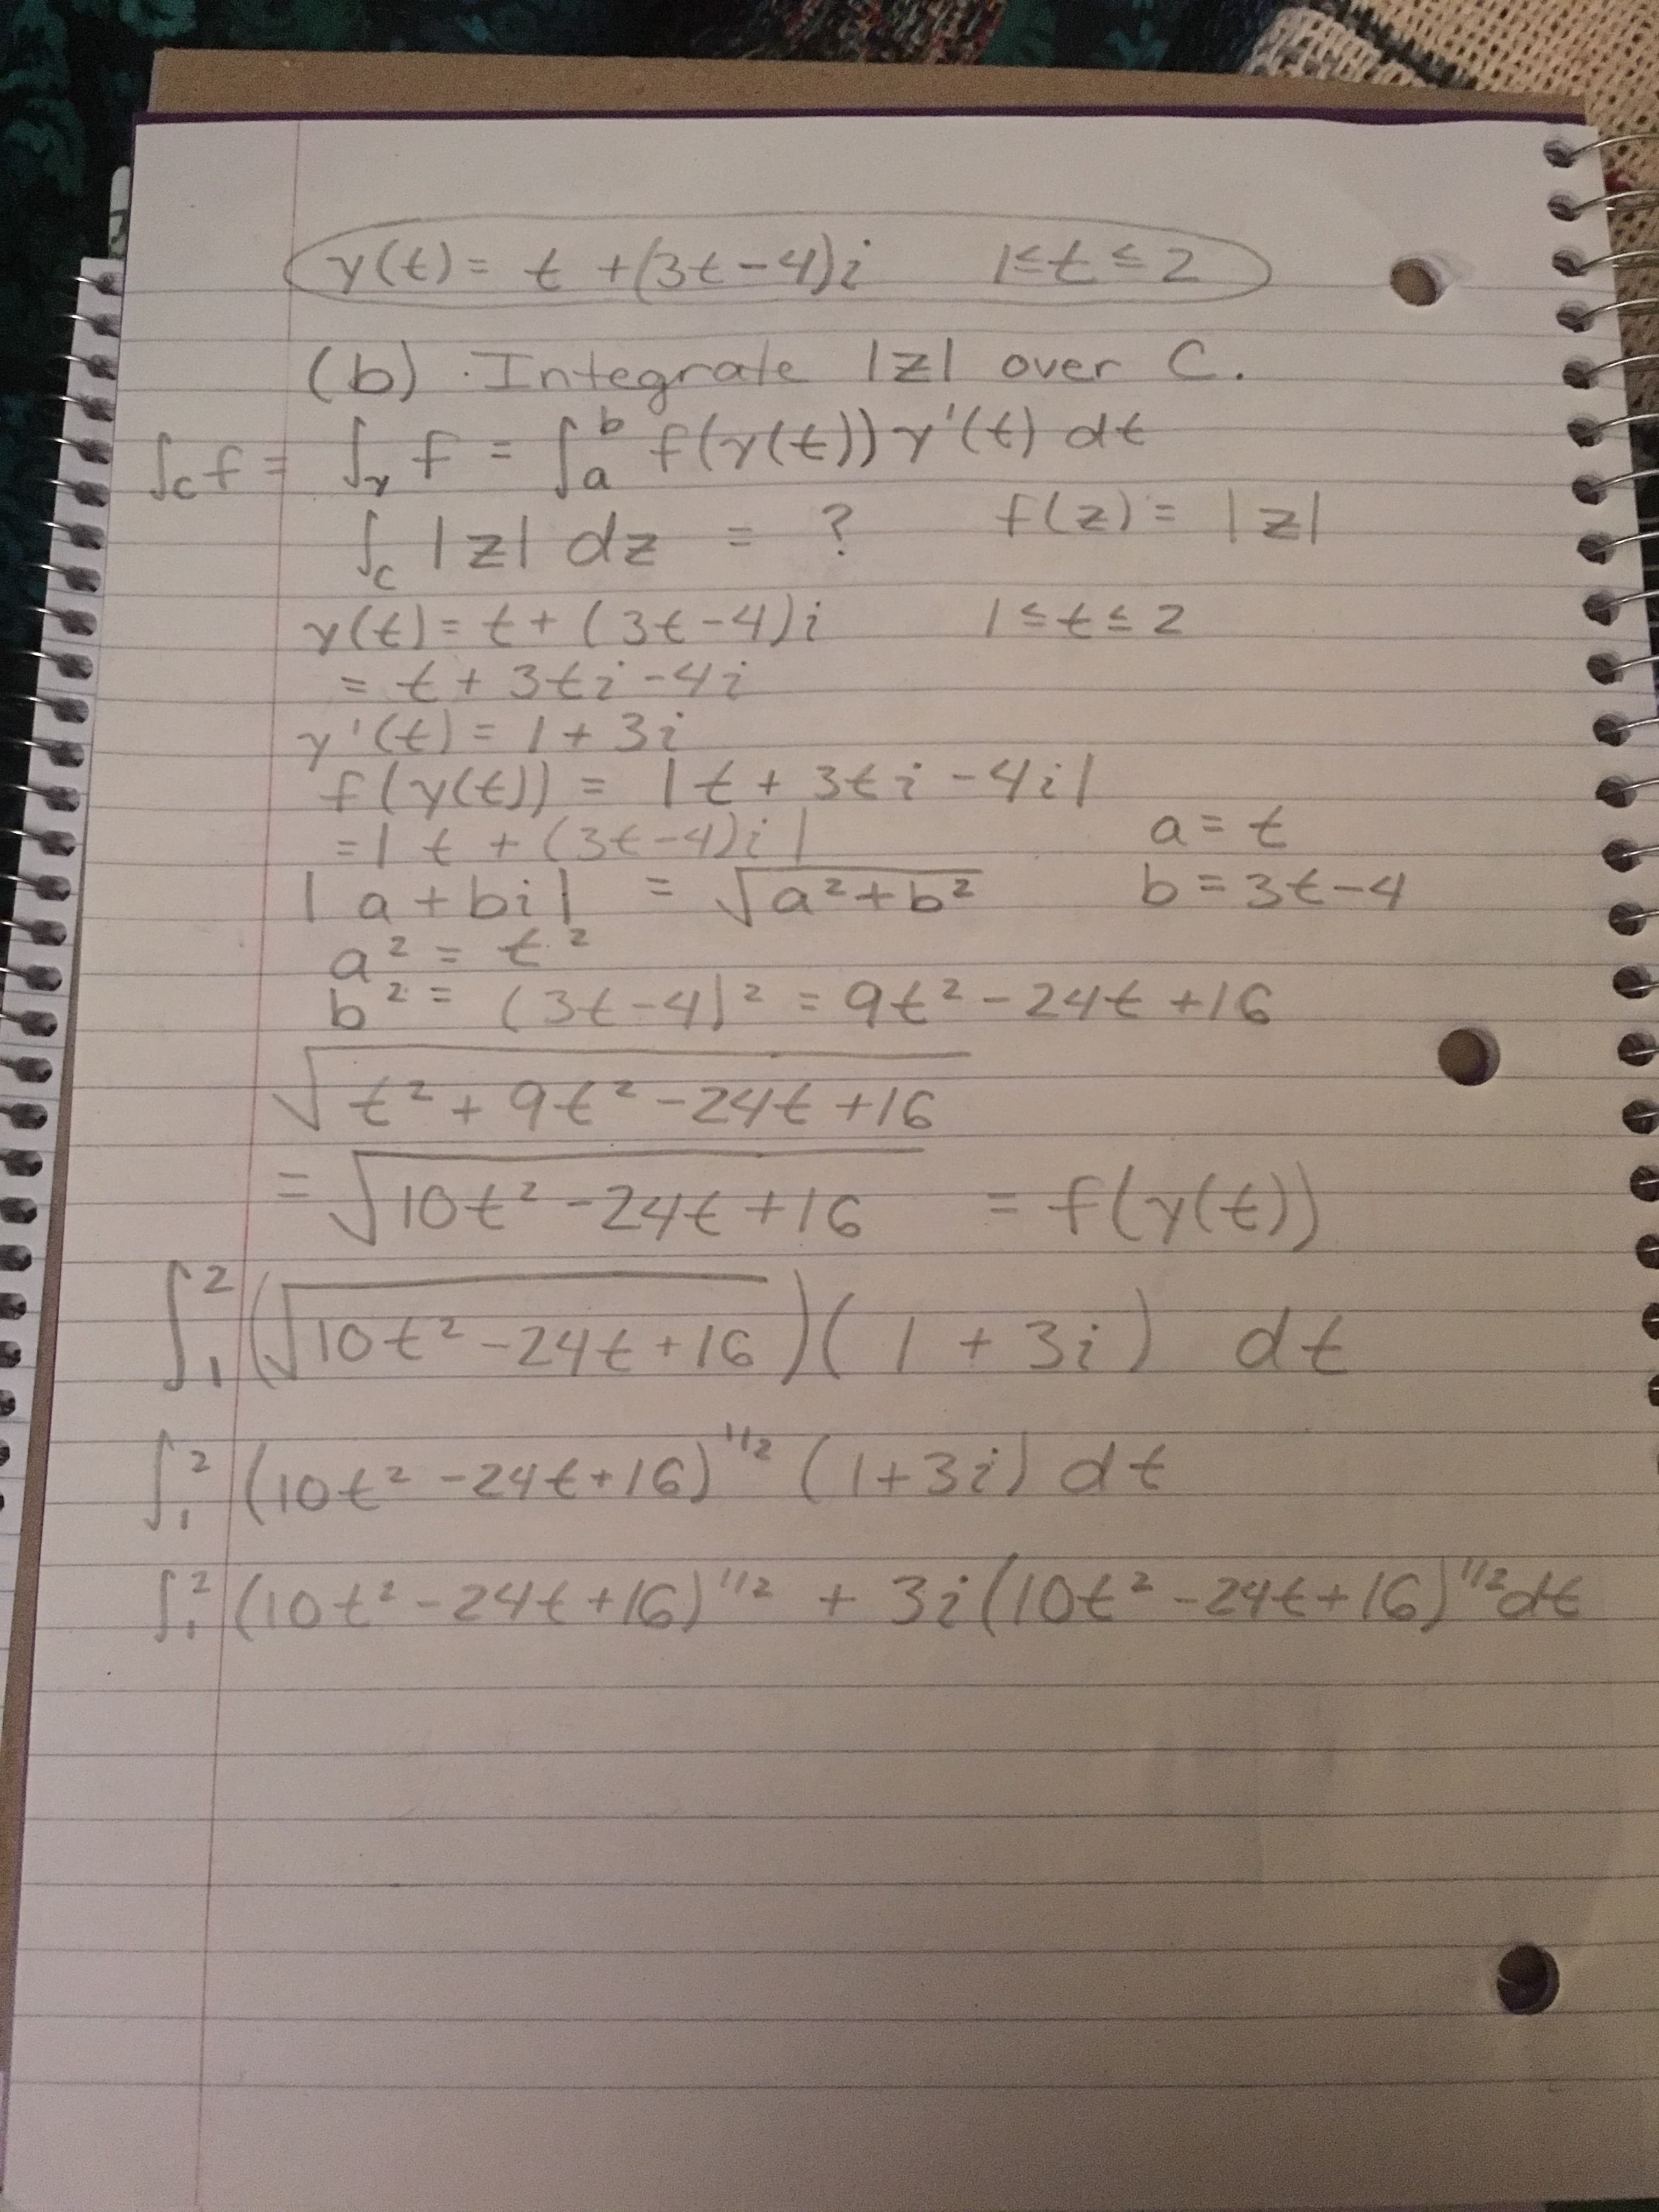 γ(t) = t + (3t-4)i   1≤t≤2
(b) · Integrate |z| over C.
∫_C f = ∫_γ f = ∫_a^b f(γ(t)) γ'(t) dt
∫_C |z| dz = ?   f(z) = |z|
γ(t) = t + (3t-4)i   1≤t≤2
= t + 3ti - 4i
γ'(t) = 1 + 3i
f(γ(t)) = |t + 3ti - 4i|
= |t + (3t-4)i|   a = t
|a + bi| = √(a² + b²)   b = 3t-4
a² = t²
b² = (3t-4)² = 9t² - 24t + 16
√(t² + 9t² - 24t + 16)
= √(10t² - 24t + 16) = f(γ(t))
∫_1^2 (√(10t² - 24t + 16))(1 + 3i) dt
∫_1^2 (10t² - 24t + 16)^1/2 (1+3i) dt
∫_1^2 (10t² - 24t + 16)^1/2 + 3i(10t² - 24t + 16)^1/2 dt